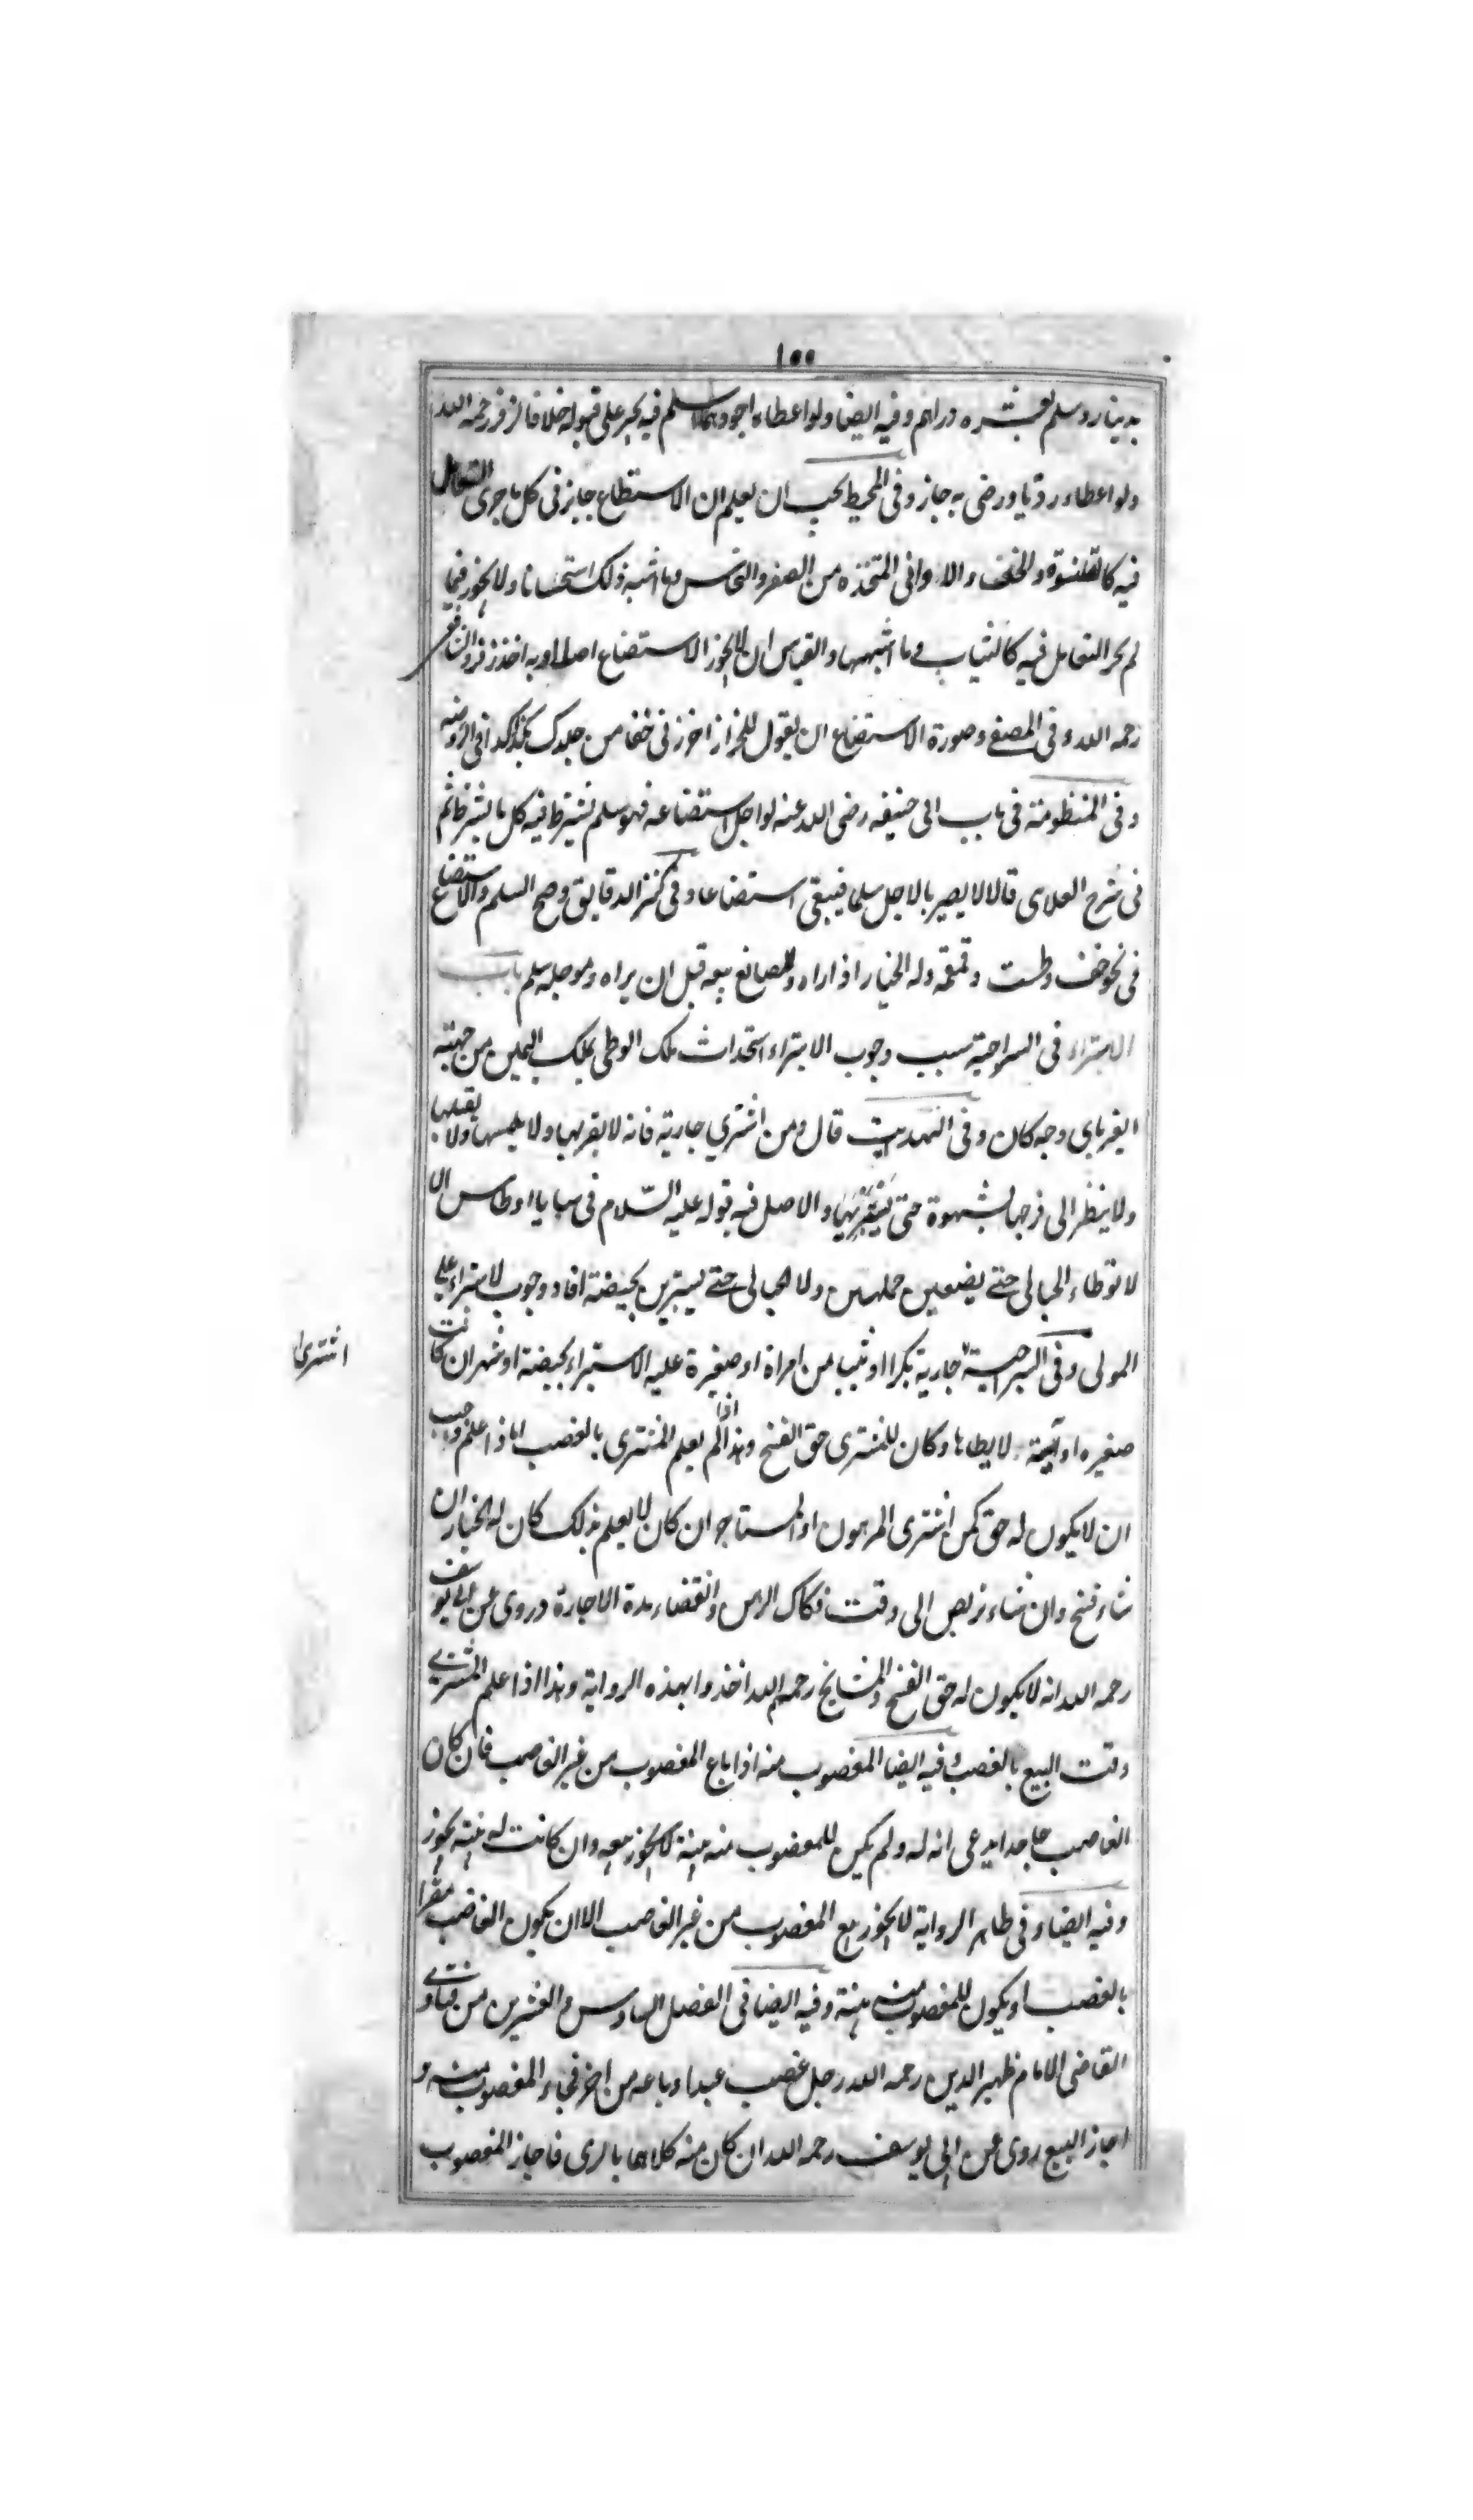 ١٥٥
بدينار وسلم بعشره دراهم وفيه ايضا ولو اعطاه اجود مما اسلم فيه يجبر على قبوله خلافا لزفر رحمه الله
ولو اعطاه رديا ورضى به جاز وفى المحيط يجب ان يعلم ان الاستصناع جايز فى كل ما جرى التعامل
فيه كالقلنسوة والخف والاوانى المتخذه من الصفر والنحاس وما اشبه ذلك استحسانا ولا يجوز فيما
لم يجر التعامل فيه كالثياب وما اشبهها والقياس ان لا يجوز الاستصناع اصلا وبه اخذ زفر والشافعى
رحمه الله وفى المصفى وصورة الاستصناع ان يقول للخراز اخرز لى خفا من جلدك بكذا كذا فى
وفى المنظومة فى باب ابى حنيفه رضى الله عنه لو اجل استصناعه فهو سلم يشترط فيه كل ما يشترط ثم
فى شرح العلاى قالا لا يصير بالاجل سلما فيبقى استصناعا وفى كنز الدقايق وصح السلم والاستصناع
فى نحو خف وطست وقمقمه وله الخيار اذا راه وللصانع بيعه قبل ان يراه وموجله سلم باب
الاستبراء فى السراجية سبب وجوب الاستبراء استحداث ملك الوطى بملك اليمين من جهته
الغير باى وجه كان وفى قال ومن اشترى جارية فانه لا يقربها ولا يلمسها ولا يقبلها
ولا ينظر الى فرجها بشهوة حتى يستبرئها والاصل فيه قوله عليه السلام فى سبايا اوطاس الا
لا توطاء الحبالى حتى يضعن حملهن ولا الحيالى حتى يستبرين بحيضة افاد وجوب الاستبراء على
المولى وفى السراجية جارية بكرا او ثيب من امراة او صغيرة عليه الاستبراء بحيضة او شهر ان كانت
اشترى
صغيره او آيسة لا يطاها وكان للمشترى حق الفسخ وهذا اذا لم يعلم المشترى بالغصب اما اذا علم وجب
ان لا يكون له حق كمن اشترى المرهون او المستاجر ان كان لا يعلم بذلك كان له الخيار ان
شاء فسخ وان شاء تربص الى وقت فكاك الرهن وانقضاء مدة الاجارة وروى عن ابى يوسف
رحمه الله انه لا يكون له حق الفسخ والمشايخ رحمهم الله اخذوا بهذه الرواية وهذا اذا علم المشترى
وقت البيع بالغصب وفيه ايضا المغصوب منه اذا باع المغصوب من غير الغاصب فان كان
الغاصب جاحدا يدعى انه له ولم يكن للمغصوب منه بينة لا يجوز بيعه وان كانت له بينة يجوز
وفيه ايضا وفى ظاهر الرواية لا يجوز بيع المغصوب من غير الغاصب الا ان يكون الغاصب مقرا
بالغصب او يكون للمغصوب منه بينة وفيه ايضا فى الفصل السادس والعشرين من فتاوى
القاضى الامام ظهير الدين رحمه الله رجل غصب عبدا وباعه من اخر فجاء المغصوب منه و
اجاز البيع روى عن ابى يوسف رحمه الله ان كان منه كلاهما بالرى فاجاز المغصوب